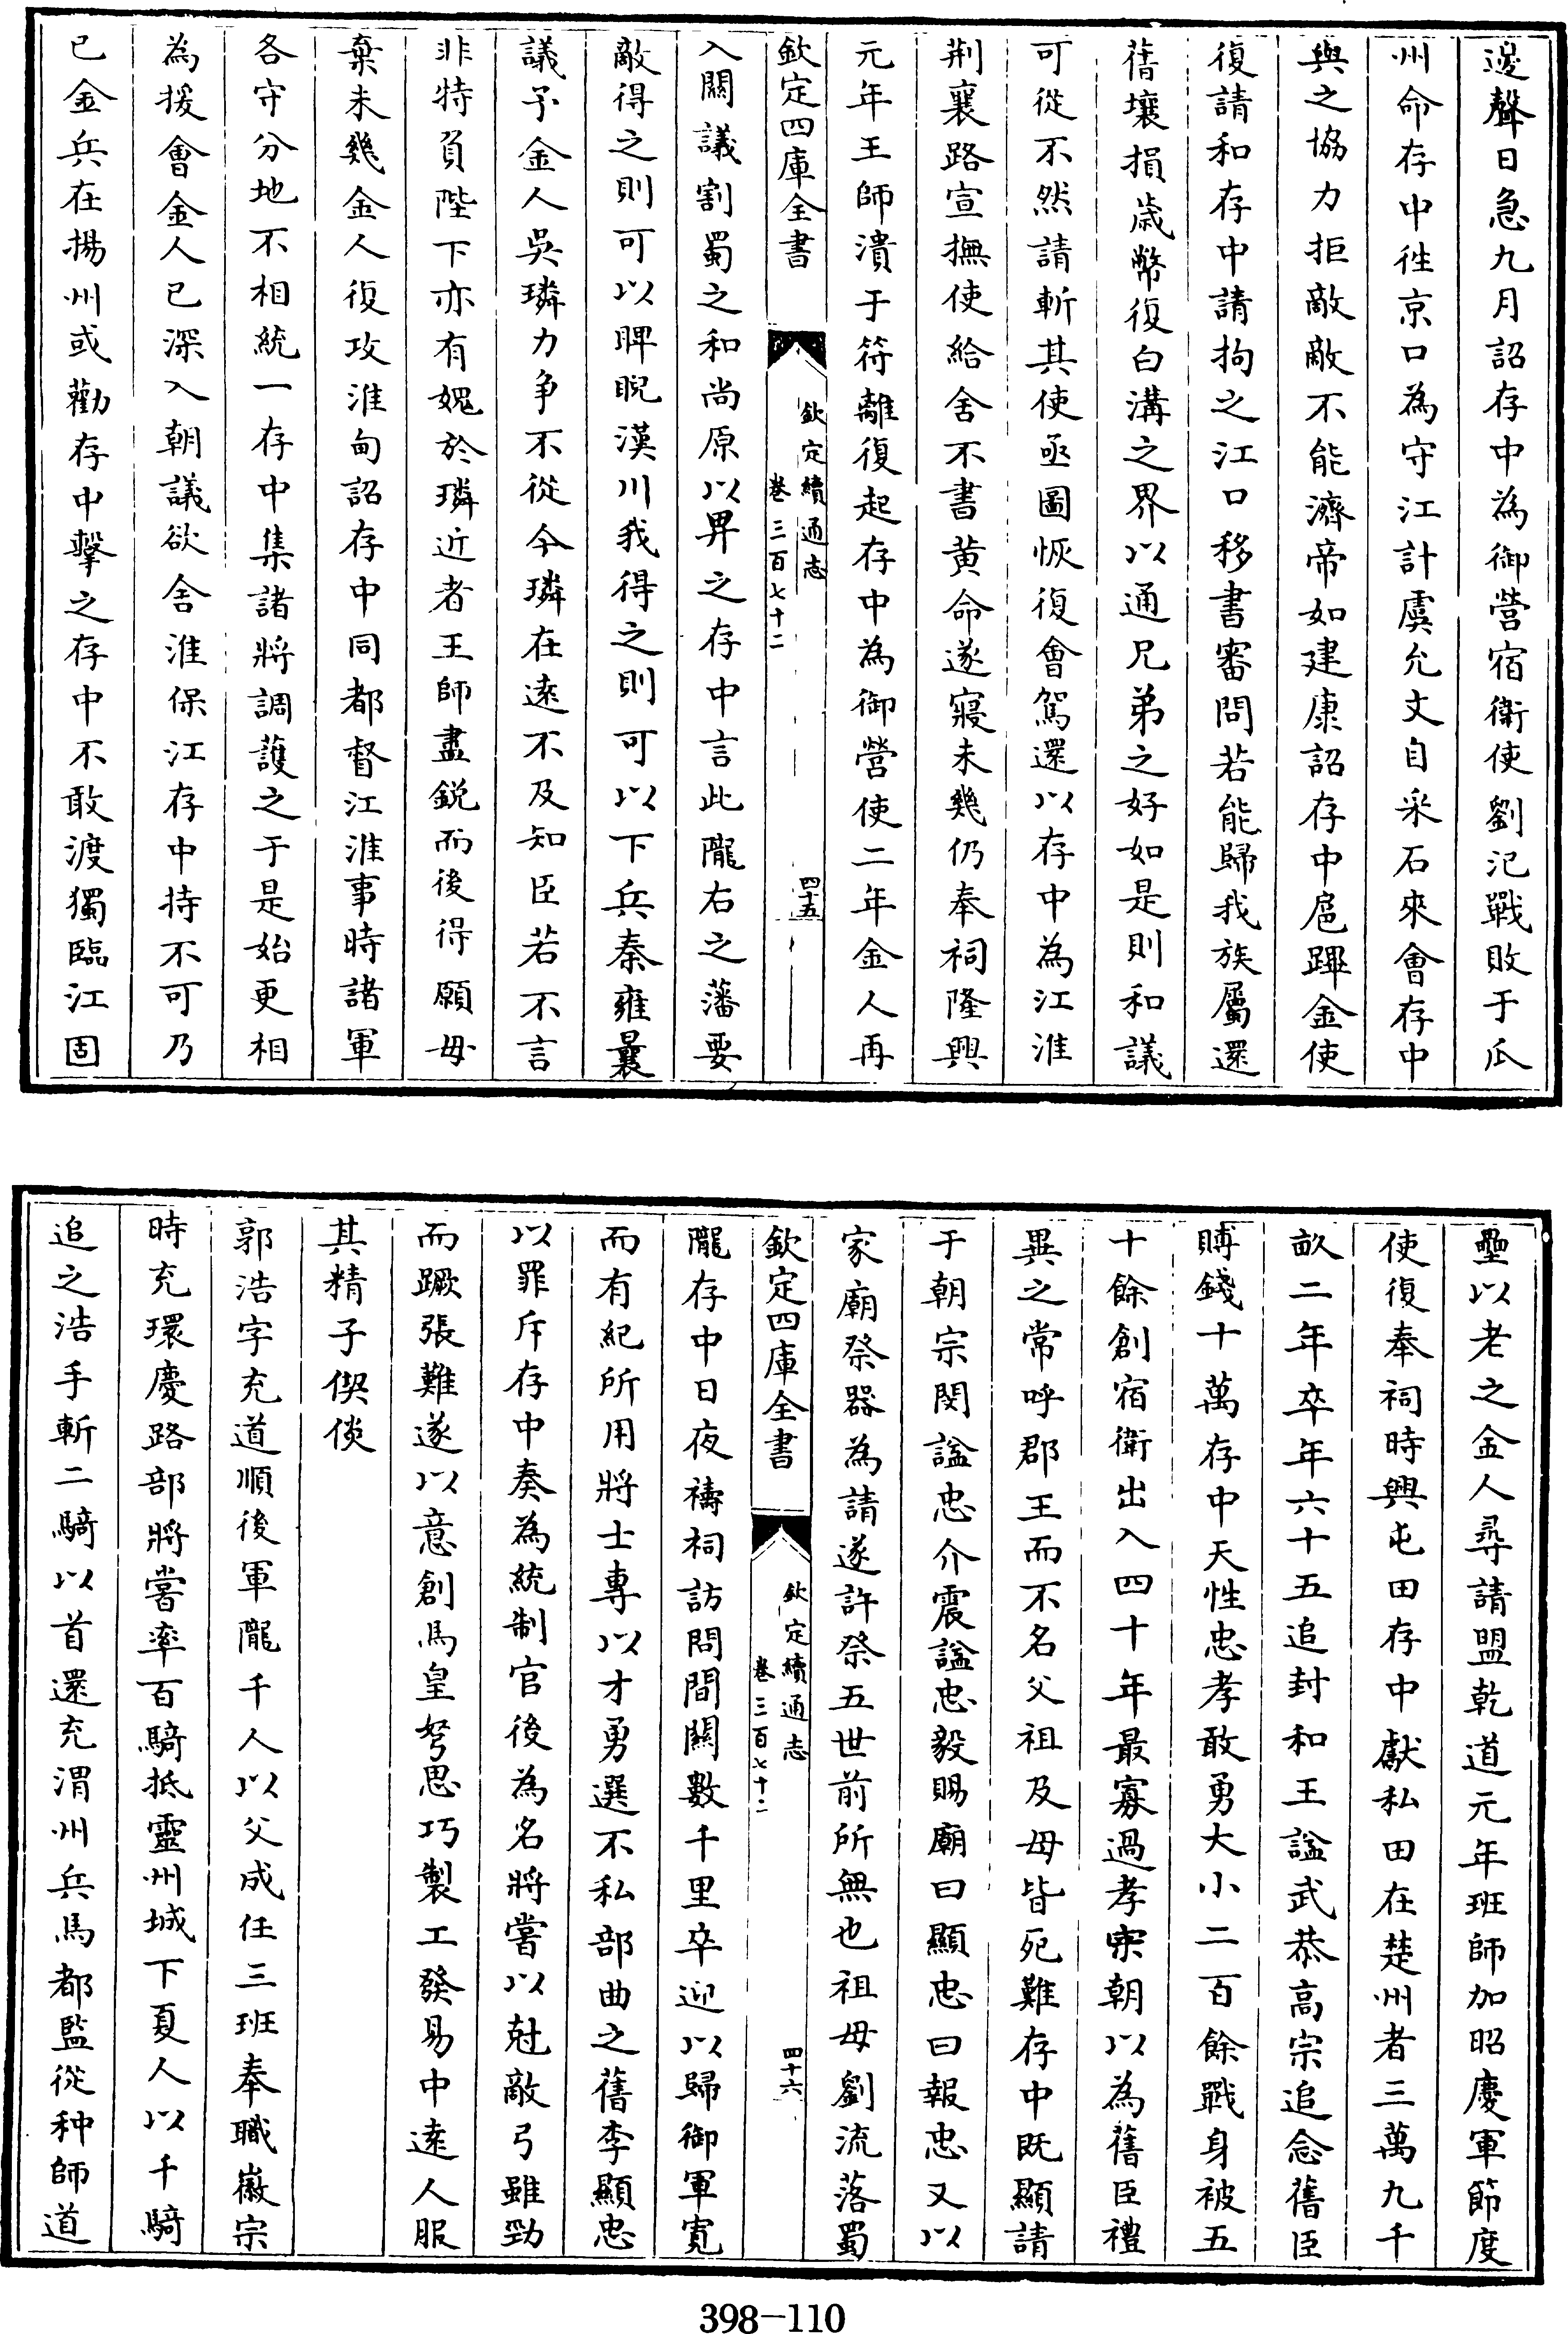 邊聲日急九月詔存中為御營宿衛使劉汜戰敗于瓜
州命存中徃京口為守江計虞允文自采石來會存中
與之協力拒敵敵不能濟帝如建康詔存中扈蹕金使
復請和存中請拘之江口移書審問若能歸我族屬還
舊壤損歲幣復白溝之界以通兄弟之好如是則和議
可從不然請斬其使亟圖恢復會駕還以存中為江淮
荆襄路宣撫使給舍不書黄命遂寢未幾仍奉祠隆興
元年王師潰于符離復起存中為御營使二年金人再
欽定四庫全書
欽定續通志
卷三百七十二
四十五
入關議割蜀之和尚原以畀之存中言此隴右之藩要
敵得之則可以睥睨漢川我得之則可以下兵秦雍曩
議予金人吳璘力争不從今璘在逺不及知臣若不言
非特負陛下亦有媿於璘近者王師盡鋭而後得願毋
棄未幾金人復攻淮甸詔存中同都督江淮事時諸軍
各守分地不相統一存中集諸將調護之于是始更相
為援會金人已深入朝議欲舍淮保江存中持不可乃
已金兵在揚州或勸存中擊之存中不敢渡獨臨江固
壘以老之金人尋請盟乾道元年班師加昭慶軍節度
使復奉祠時興屯田存中獻私田在楚州者三萬九千
畝二年卒年六十五追封和王謚武恭高宗追念舊臣
賻錢十萬存中天性忠孝敢勇大小二百餘戰身被五
十餘創宿衛出入四十年最寡過孝宗朝以為舊臣禮
異之常呼郡王而不名父祖及母皆死難存中既顯請
于朝宗閔謚忠介震謚忠毅賜廟曰顯忠曰報忠又以
家廟祭器為請遂許祭五世前所無也祖母劉流落蜀
欽定四庫全書
欽定續通志
卷三百七十二
四十六
隴存中日夜禱祠訪問間關數千里卒迎以歸御軍寬
而有紀所用將士專以才勇選不私部曲之舊李顯忠
以罪斥存中奏為統制官後為名將嘗以尅敵弓雖勁
而蹶張難遂以意創馬皇弩思巧製工發易中逺人服
其精子偰倓
郭浩字充道順後軍隴千人以父成任三班奉職徽宗
時充環慶路部將嘗率百騎抵靈州城下夏人以千騎
追之浩手斬二騎以首還充渭州兵馬都監從种師道
398-110